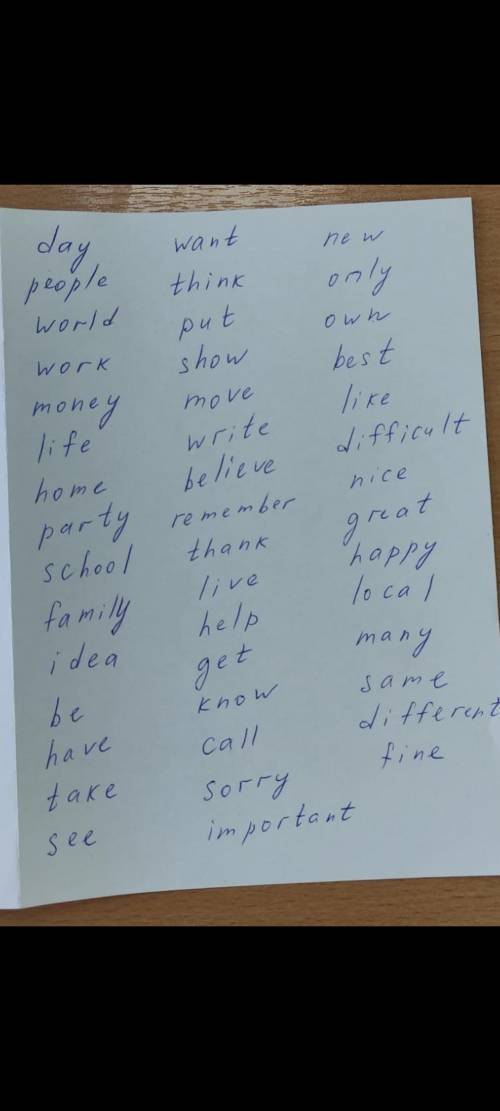 day
people
world
work
money
life
home
party
school
family
idea
be
have
take
see
want
think
put
show
move
write
believe
remember
thank
live
help
get
know
call
sorry
important
new
only
own
best
like
difficult
nice
great
happy
local
many
same
different
fine